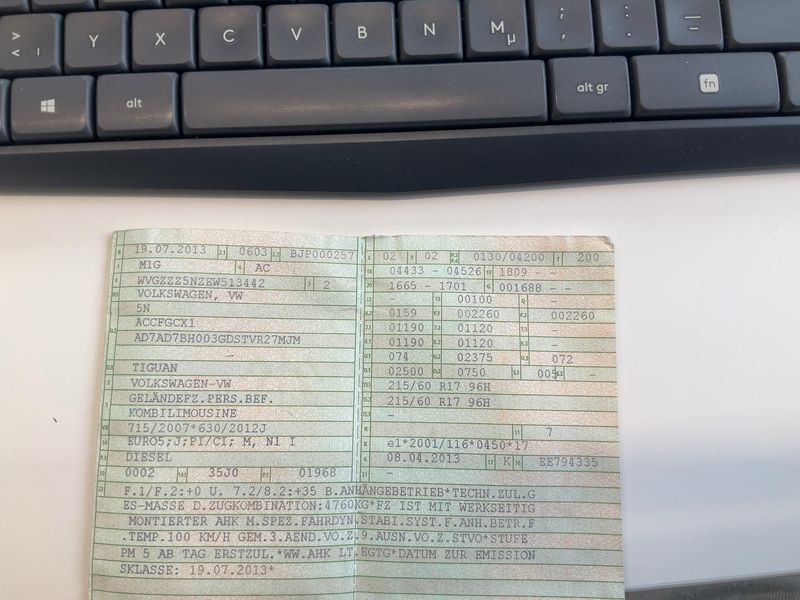 > < |
Y
X
C
V
B
N
M µ
; ,
: .
alt
alt gr
fn
B 19.07.2013 2.1 0603 2.2 BJP000257
J M1G 4 AC
E WVGZZZ5NZEW513442 3 2
D.1 VOLKSWAGEN, VW
5N
D.2 ACCFGCX1
AD7AD7BH003GDSTVR27MJM
–
D.3 TIGUAN
2 VOLKSWAGEN-VW
5 GELÄNDEFZ.PERS.BEF.
KOMBILIMOUSINE
V.9 715/2007*630/2012J
14 EURO5;J;PI/CI; M, N1 I
P.3 DIESEL
10 0002 14.1 35J0 P.1 01968
L 02 9 02 P.2 P.4 0130/04200 T 200
18 04433 - 04526 19 1809 - -
20 1665 - 1701 G 001688 - -
12 - 13 00100 Q -
V.7 0159 F.1 002260 F.2 002260
7.1 01190 7.2 01120 7.3 -
8.1 01190 8.2 01120 8.3 -
U.1 074 U.2 02375 U.3 072
O.1 02500 O.2 0750 S.1 005 S.2 -
15.1 215/60 R17 96H
15.2 215/60 R17 96H
15.3 -
R 11 7
K e1*2001/116*0450*17
6 08.04.2013 17 K 16 EE794335
21 -
22 F.1/F.2:+0 U. 7.2/8.2:+35 B.ANHÄNGEBETRIEB*TECHN.ZUL.G
ES-MASSE D.ZUGKOMBINATION:4760KG*FZ IST MIT WERKSEITIG
MONTIERTER AHK M.SPEZ.FAHRDYN.STABI.SYST.F.ANH.BETR.F
.TEMP.100 KM/H GEM.3.AEND.VO.Z.9.AUSN.VO.Z.STVO*STUFE
PM 5 AB TAG ERSTZUL.*WW.AHK LT.EGTG*DATUM ZUR EMISSION
SKLASSE: 19.07.2013*